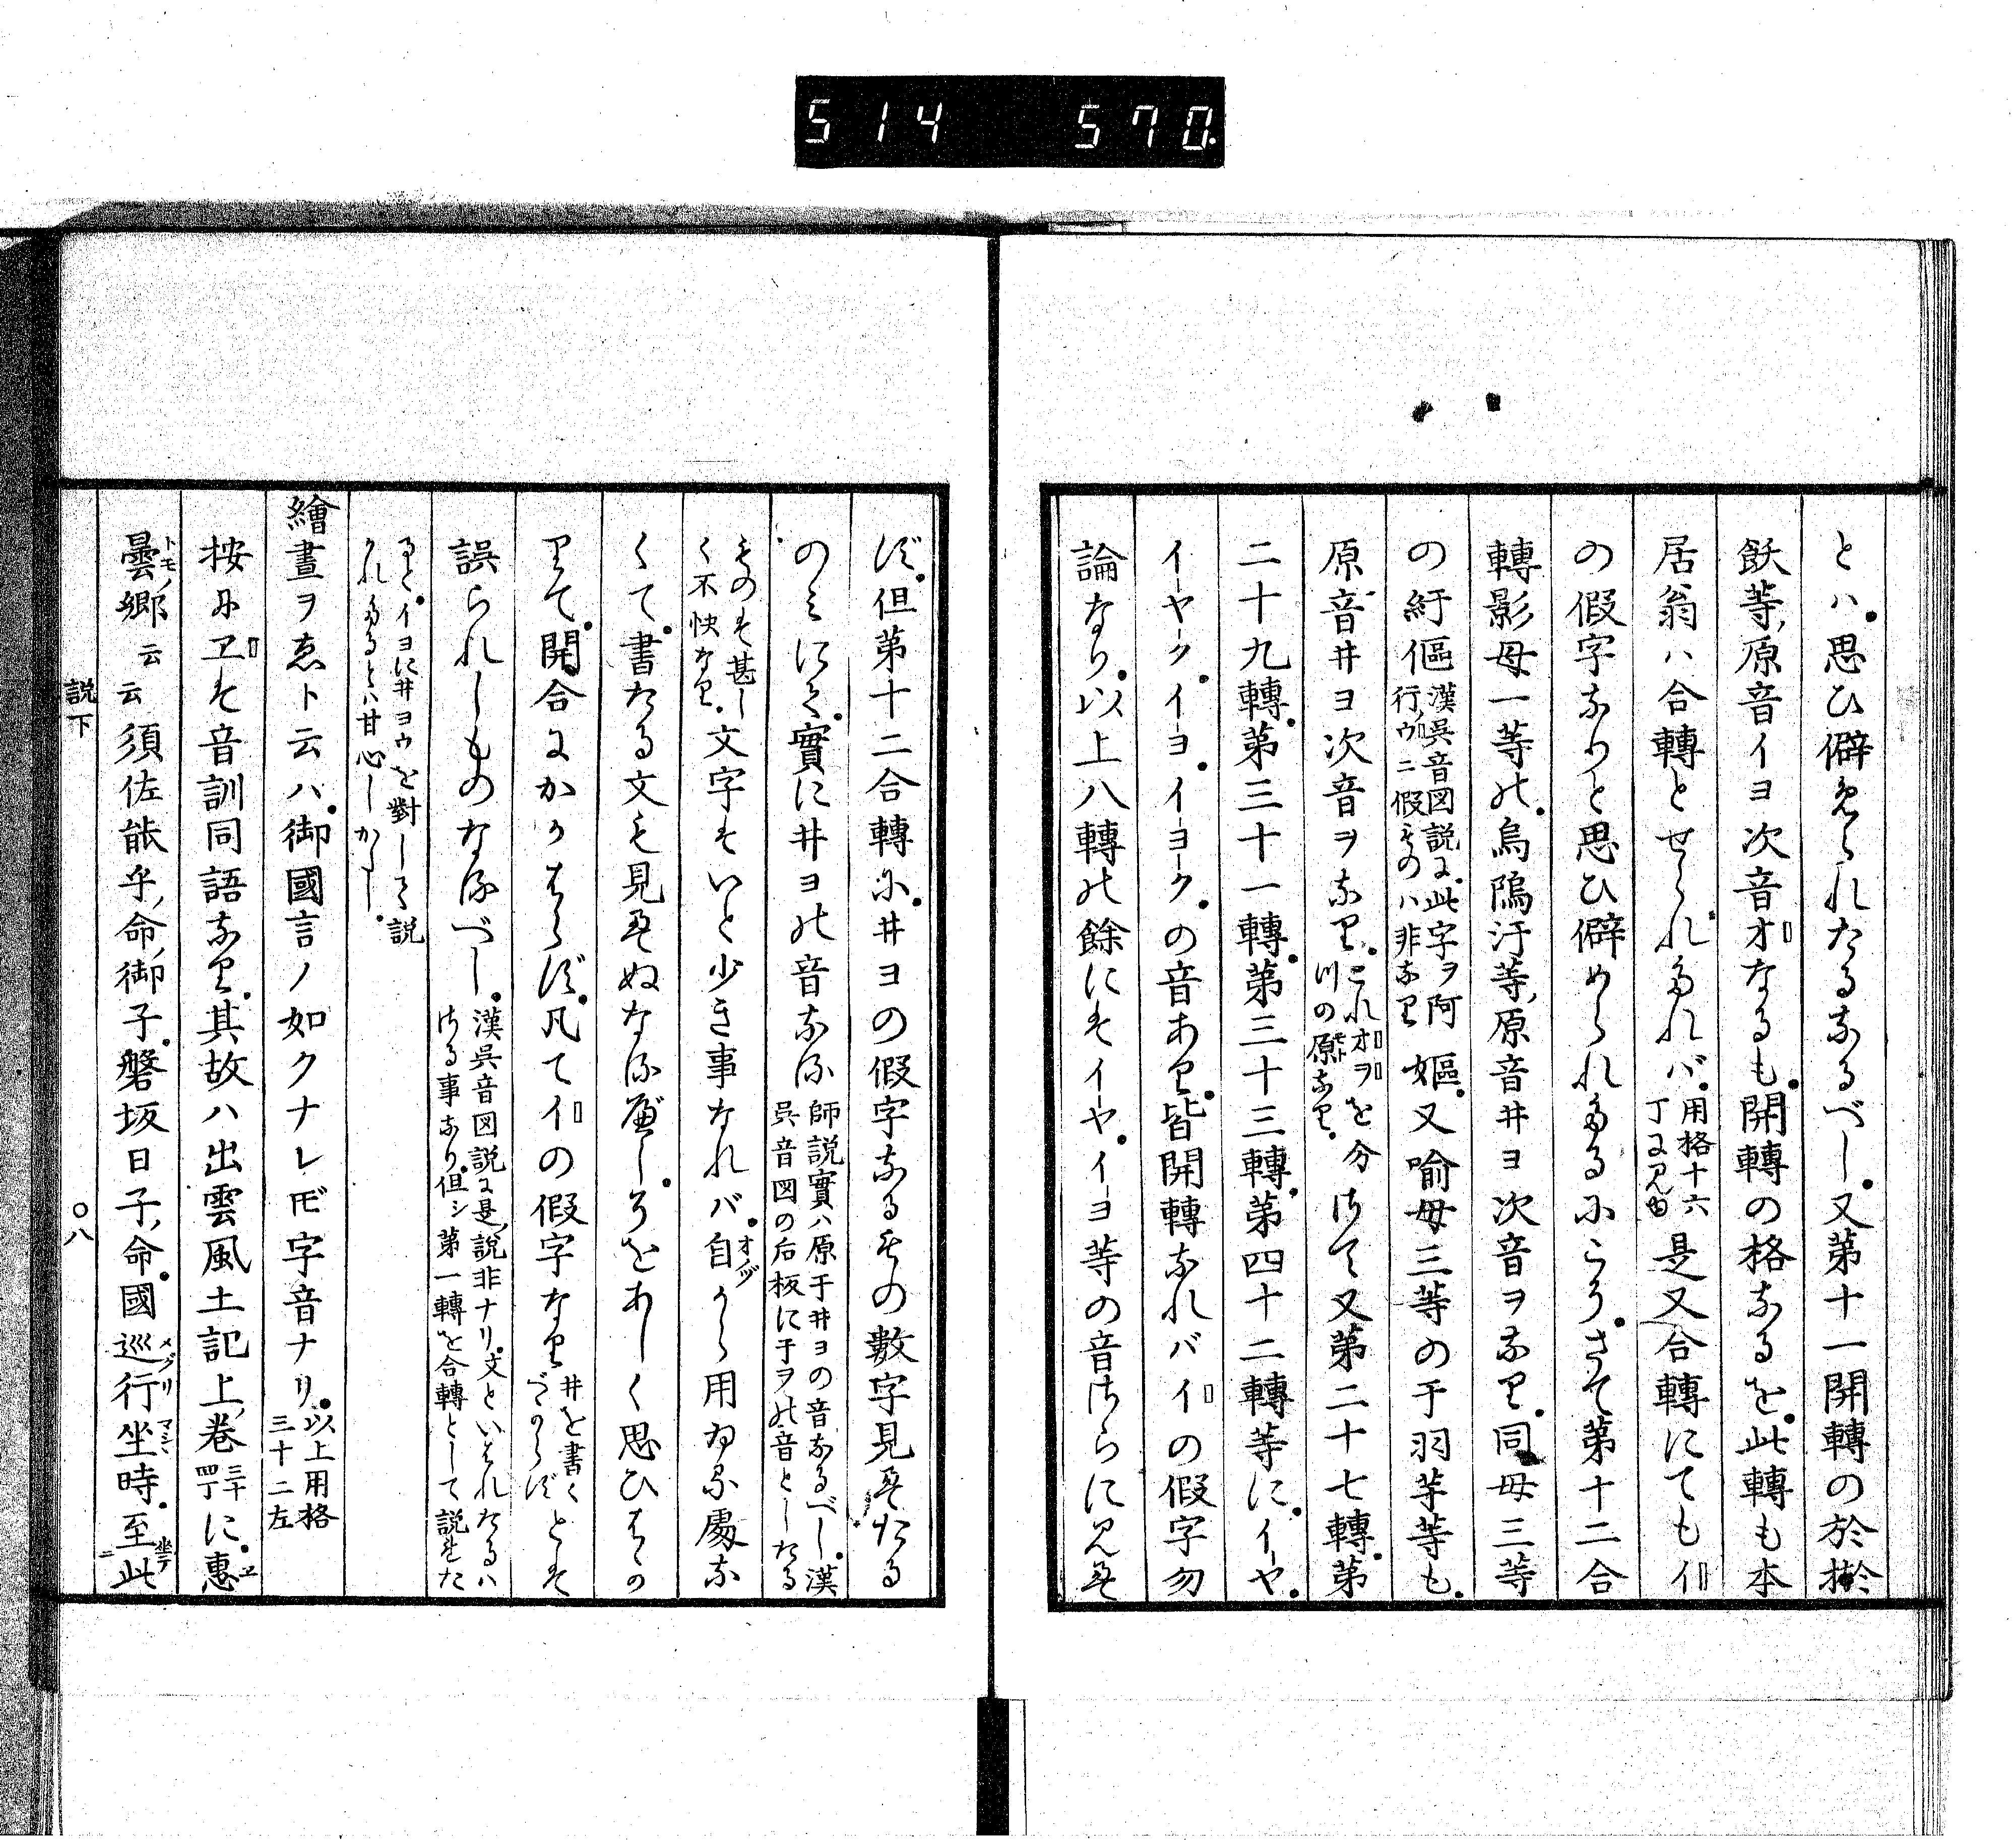 514 570.
とハ思ひ僻められたるなるべし又第十一開轉の於㭨
飫等原音イヨ次音オなるも開轉の格なるを此轉も本
居翁ハ合轉とせられたれバ用格十六丁に見ゆ是又合轉にてもイ
の假字なりと思ひ僻められたるにこそさて第十二合
轉影母一等の烏隖汙等原音ヰヨ次音ヲなり同母三等
の紆傴漢呉音図説に此字ヲ阿行ノウニ假ものハ非なり嫗又喩母三等の于羽芋等も
原音ヰヨ次音ヲなりこれオヲを分つの原なりさて又第二十七轉第
二十九轉第三十一轉第三十三轉第四十二轉等にイーヤ
イーヤークイーヨイーヨークの音あり皆開轉なれバイの假字勿
論なり以上八轉の餘にはイーヤイーヨ等の音さらに見え
ず但第十二合轉にヰヨの假字なるもの數字見えたる
のみにて實にヰヨの音なる師説實ハ原于ヰヨの音なるべし漢呉音図の后板に于ヲの音としたる
ものは甚しく不快なり文字はいと少き事なれバ自から用ゐる處な
くて書たる文も見えぬなるべしそをあしく思ひはか
りて開合にかかはらず凡てイの假字なりヰを書くべからずとは
誤られしものなるべし漢呉音図説に是説非ナリ文といはれたるハさる事なり但シ第一轉を合轉として説れた
るくイヨにヰヨウを對して説かれたるとハ甘心しがたし
繪畫ヲゑト云ハ御國言ノ如クナレドモ字音ナリ以上用格三十二左
按にヱは音訓同語なり其故ハ出雲風土記上巻三十四丁に惠
曇郷云云須佐能乎命御子磐坂日子命國巡行坐時至坐此
説下 〇八